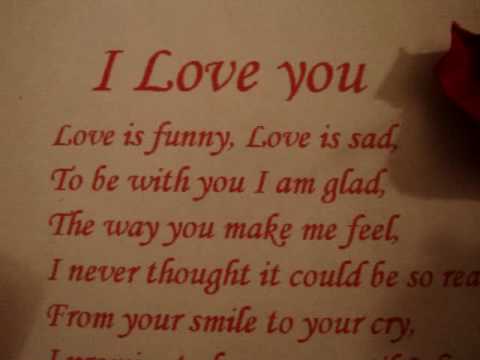 I Love you
Love is funny, Love is sad,
To be with you I am glad,
The way you make me feel,
I never thought it could be so rea
From your smile to your cry,
I